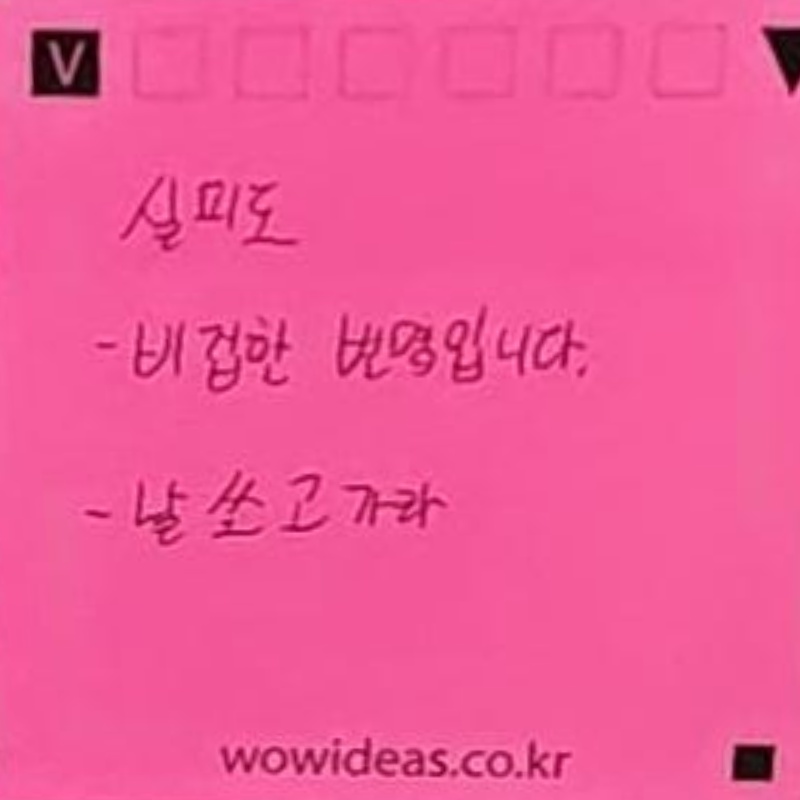 V
실미도
- 비겁한 변명입니다.
- 날 쏘고 가라
wowideas.co.kr